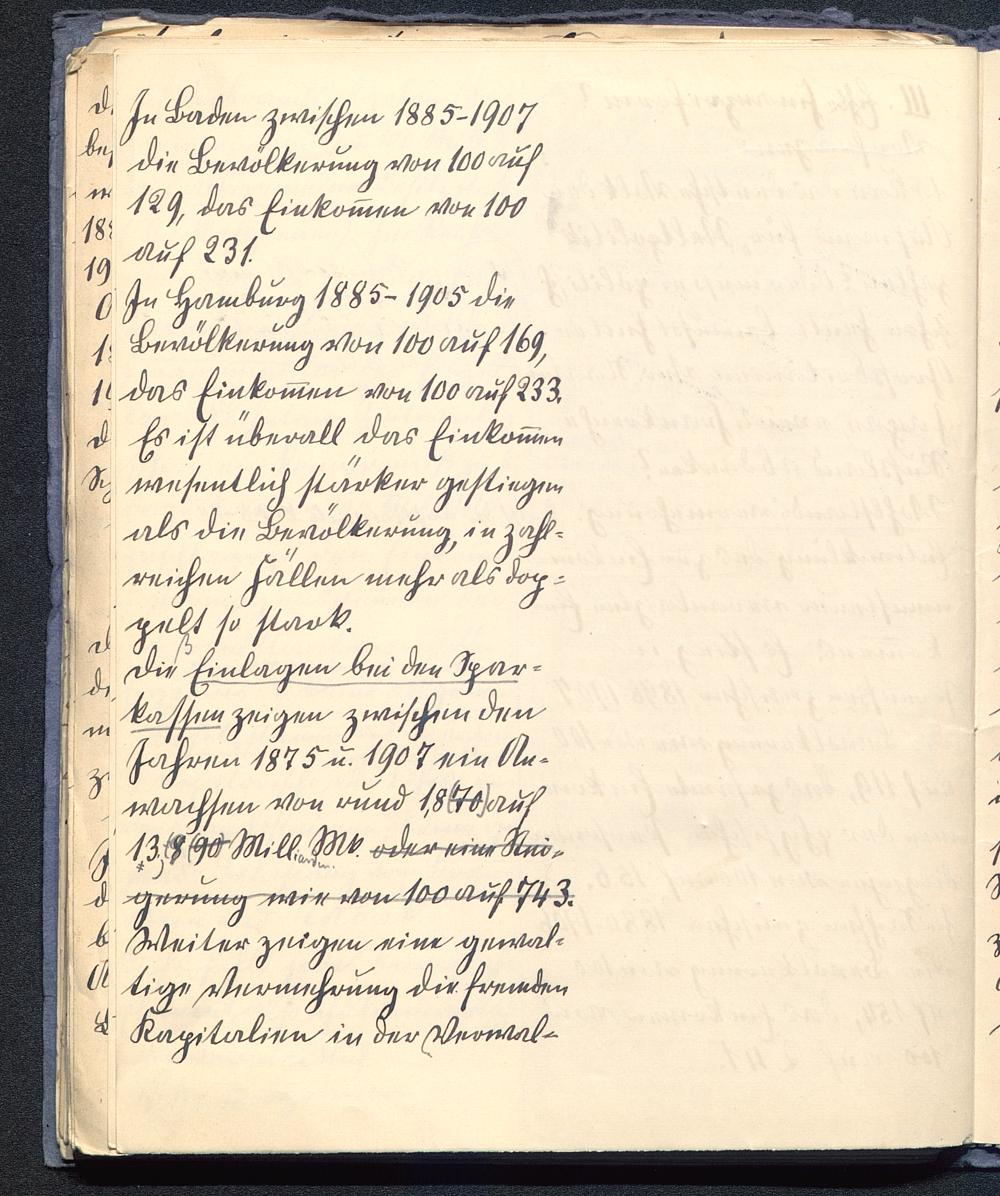 In Baden zwischen 1885-1907
die Bevölkerung von 100 auf
129, das Einkom̄en von 100
auf 231.
In Hamburg 1885-1905 die
Bevölkerung von 100 auf 169,
das Einkom̄en von 100 auf 233.
Es ist überall das Einkom̄en
wesentlich stärker gestiegen
als die Bevölkerung, in zahl=
reichen Fällen mehr als dop=
pelt so stark.
Die Einlagen bei den Spar=
kassen zeigen zwischen den
Jahren 1875 u. 1907 ein An=
wachsen von rund 1,8(70) auf
13,8(90) Milliarden Mk. oder eine Stei=
gerung wie von 100 auf 743.
Weiter zeigen eine gewal=
tige Vermehrung die fremden
Kapitalien in der Verwal=